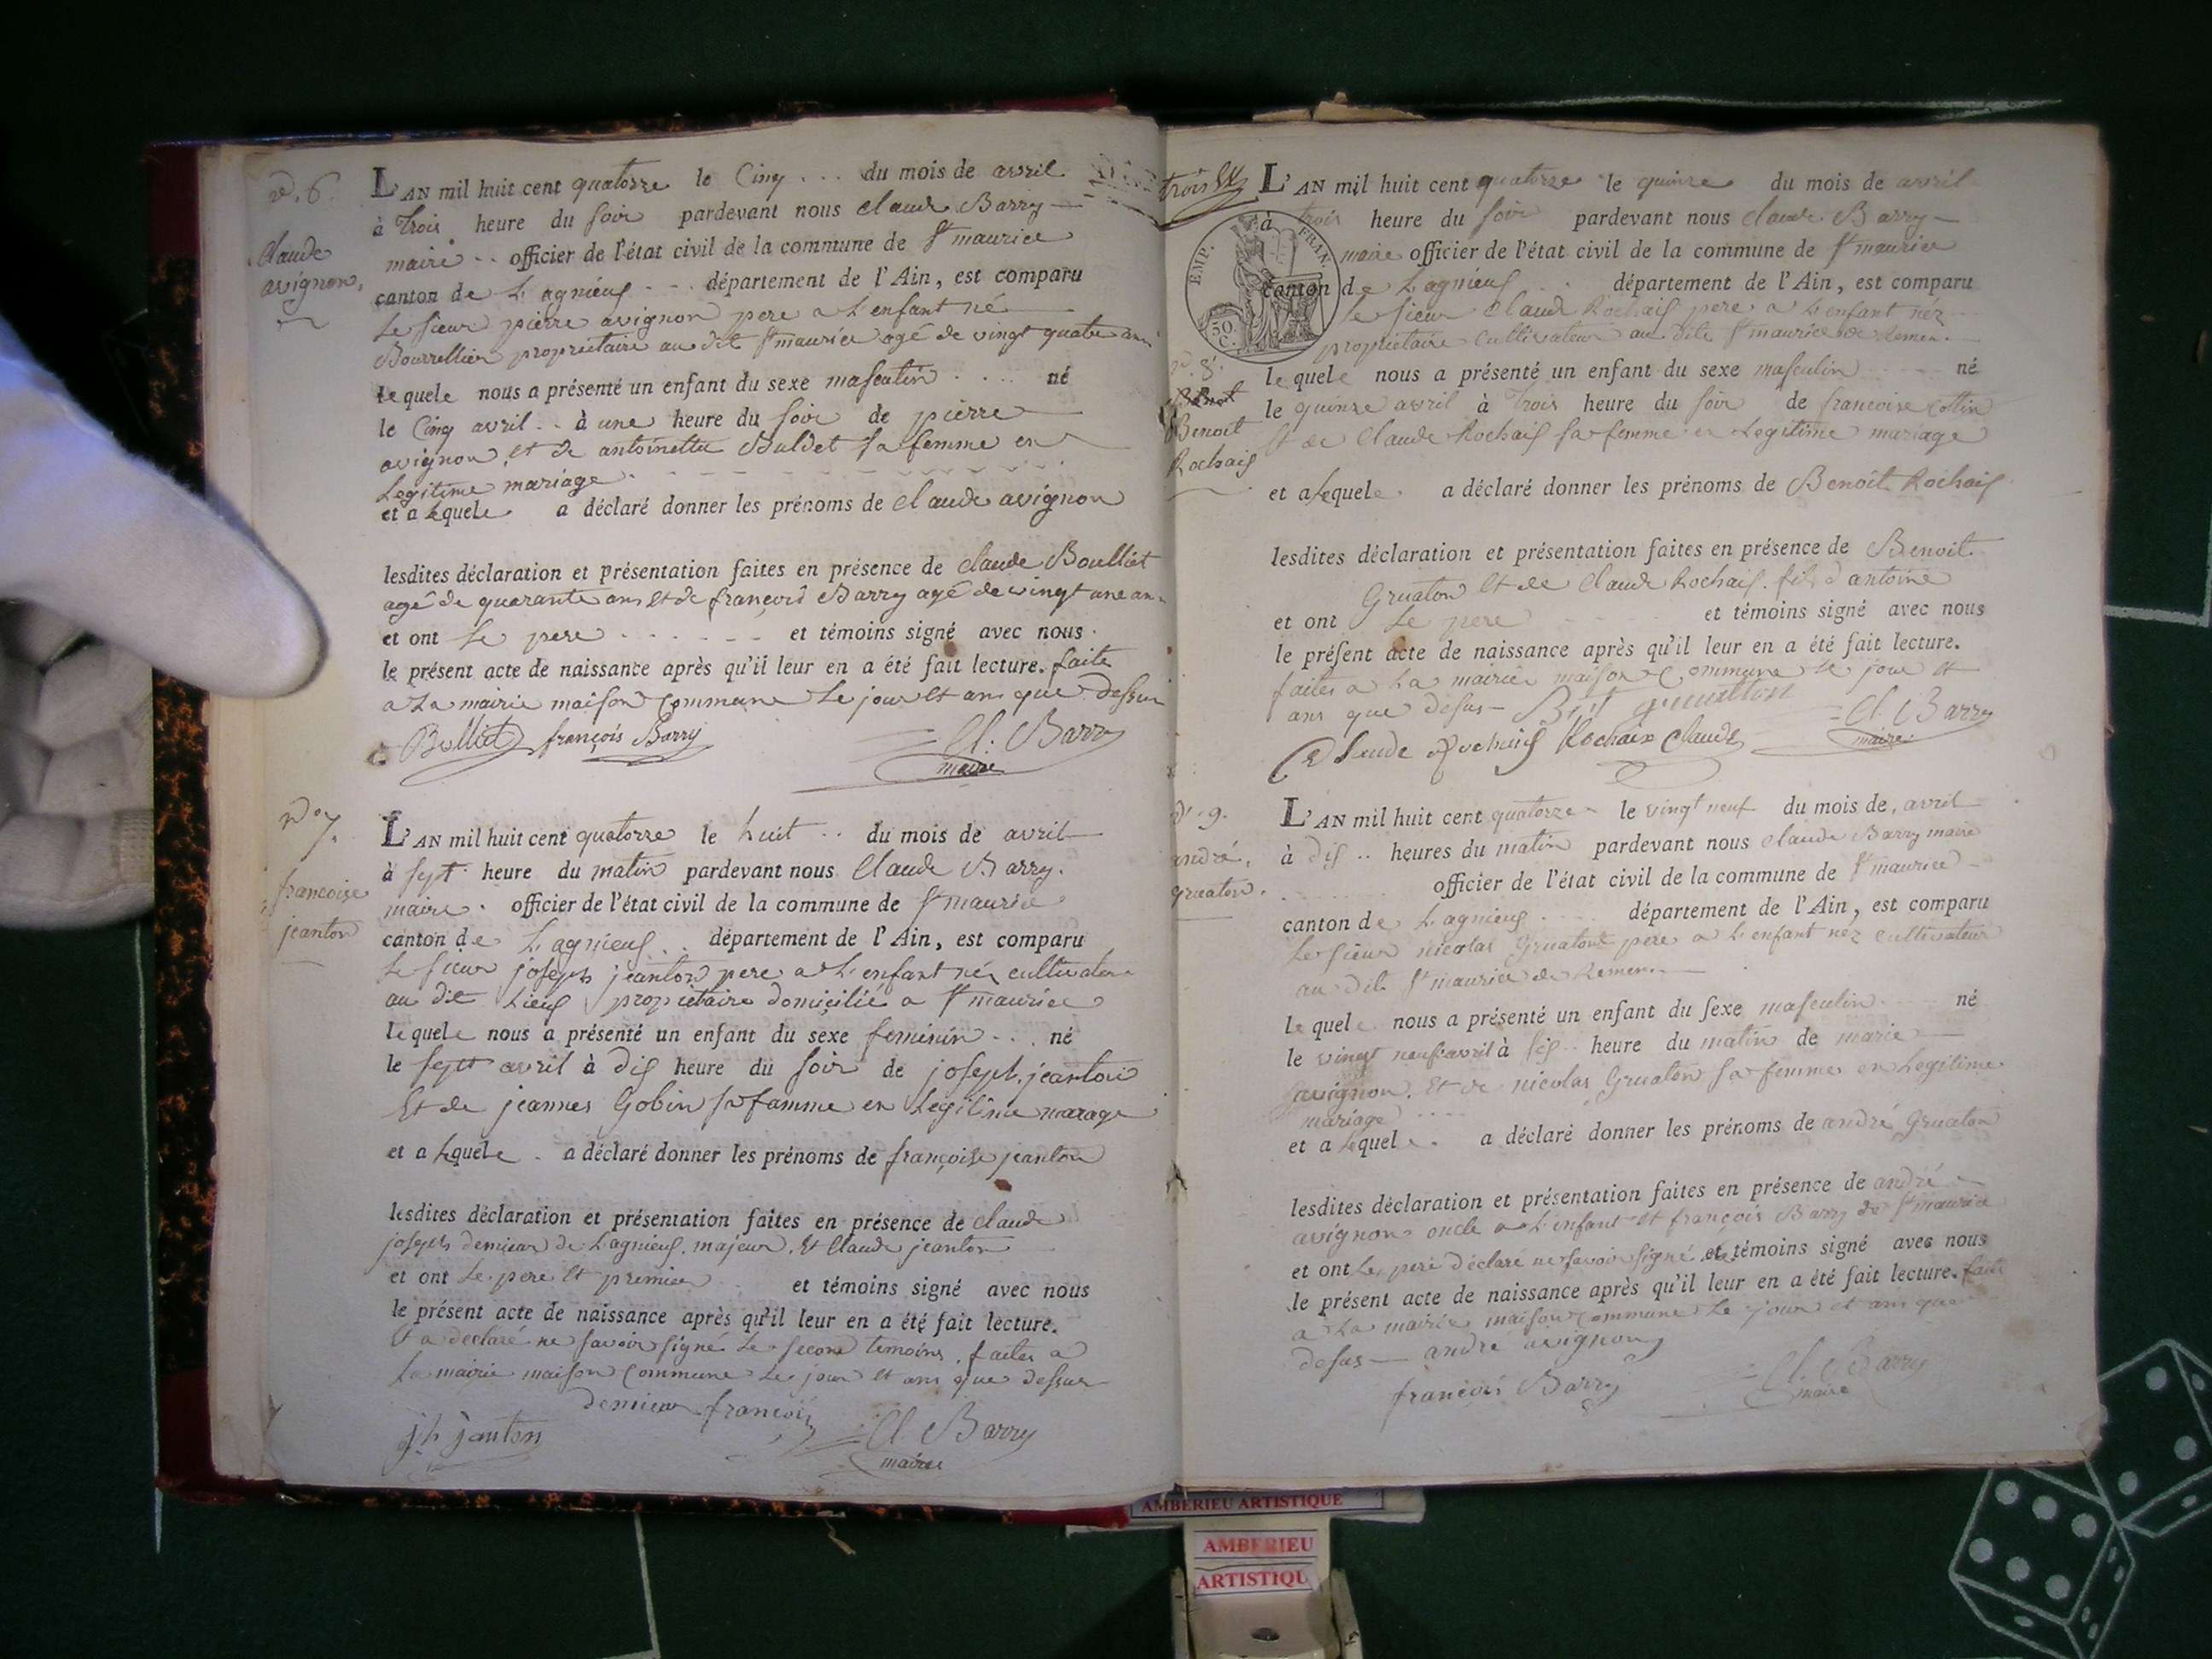 n.° 6.
Claude
avignon,
L'AN mil huit cent quatorze le Cinq . . . du mois de avril
à Trois heure du soir pardevant nous claude Barry
maire . . officier de l'état civil de la commune de St maurice
canton de L'agnieuf . . . département de l'Ain, est comparu
Le sieur pierre avignon pere a L'enfant né
Bourrellier propriétaire au dit St maurice agé de vingt quatre ans
le quele nous a présenté un enfant du sexe masculin . . . . né
le Cinq avril . . à une heure du soir de pierre
avignon, et de antoinette Buldet sa femme en
Legitime mariage.
et a Lequele a déclaré donner les prénoms de claude avignon
lesdites déclaration et présentation faites en présence de claude Boulliat
agé de quarante ans et de françois Barry agé de vingt une ans
et ont Le pere . . . . . . et témoins signé avec nous
le présent acte de naissance après qu'il leur en a été fait lecture. faite
a La mairie maison Commune Le jour et ans que dessus
Bulliat françois Barry Cl. Barry
maire
n.° 7.
francoise
jeanton
L'AN mil huit cent quatorze le huit . . du mois de avril
à sept heure du matin pardevant nous Claude Barry.
maire . officier de l'état civil de la commune de St maurice
canton de L'agnieuf . . département de l'Ain, est comparu
Le sieur joseph jeanton pere a L'enfant néz cultivateur
au dit Lieuf propriétaire domicilié a St maurice
le quele nous a présenté un enfant du sexe feminin . . . né
le sept avril à dis heure du soir de joseph jeanton
Et de jeannes Gobin sa famme en Legitime marage
et a Lequele . a déclaré donner les prénoms de françoise jeanton
lesdites déclaration et présentation faites en présence de claude
joseph demieur de Lagnieuf, majeur, Et Claude jeanton
et ont Le pere Et premier et témoins signé avec nous
le présent acte de naissance après qu'il leur en a été fait lecture.
Et a declaré ne savoir signé Le second temoins. faites a
La mairie maison Commune Le jour Et ans que dessus
demieur francois
jh janton Cl Barry
maire
trois
EMP. FRAN.
50. C.
L'AN mil huit cent quatorze le quinze du mois de avril
à trois heure du soir pardevant nous claude Barry
maire officier de l'état civil de la commune de St maurice
canton de Lagnieuf . . département de l'Ain, est comparu
le sieur Claude Rochaif pere a L'enfant néz
propriétaire Cultivateur au dite St maurice de Remen.
n.° 8.
Benoit
Rochaif
le quele nous a présenté un enfant du sexe masculin . . . . né
le quinse avril à Trois heure du soir de francoise Collin
Et de Claude Rochaif sa femme en Legitime mariage
et a Lequele . a déclaré donner les prénoms de Benoit Rochaif
lesdites déclaration et présentation faites en présence de Benoit
Gruaton Et de Claude Rochaif fils d'antoine
et ont Le pere et témoins signé avec nous
le présent acte de naissance après qu'il leur en a été fait lecture.
faites a La mairie maison Commune le jour et
ans que desus Bt gruatton Cl. Barry
Claude Rochaif Rochaix Claude maire
n.° 9.
andré,
gruaton.
L'AN mil huit cent quatorze le vingt neuf du mois de avril
à dis . . heures du matin pardevant nous claude Barry maire
officier de l'état civil de la commune de St maurice
canton de Lagnieuf . . . département de l'Ain, est comparu
Le sieur nicolas Gruatont pere a L'enfant néz cultivateur
au dit St maurice de Remen.
le quele nous a présenté un enfant du sexe masculin . . . . né
le vingt neuf avril à sis . . heure du matin de marie
avignon. Et de nicolas Gruaton sa femme en Legitime
mariage . . . .
et a Lequele . a déclaré donner les prénoms de andré Gruaton
lesdites déclaration et présentation faites en présence de andré
avignon oncle a L'enfant et françois Barry de St maurice
et ont Le pere déclaré ne savoir signé et témoins signé avec nous
le présent acte de naissance après qu'il leur en a été fait lecture. faite
a La mairie maison Commune Le jour et ans que
desus andré avignon
françois Barry Cl. Barry
maire
AMBERIEU ARTISTIQUE
AMBERIEU
ARTISTIQU